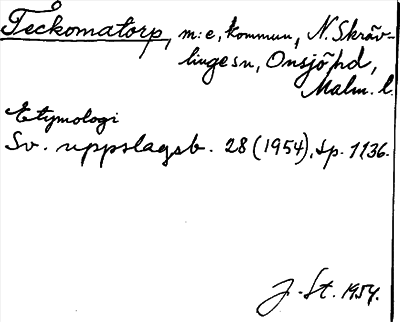 Teckomatorp, m:e, kommun, N. Skräv-
lingesn, Onsjöhd,
Malm. l.
Etymologi
Sv. uppslagsb. 28 (1954), sp. 1136.
J. St. 1954.